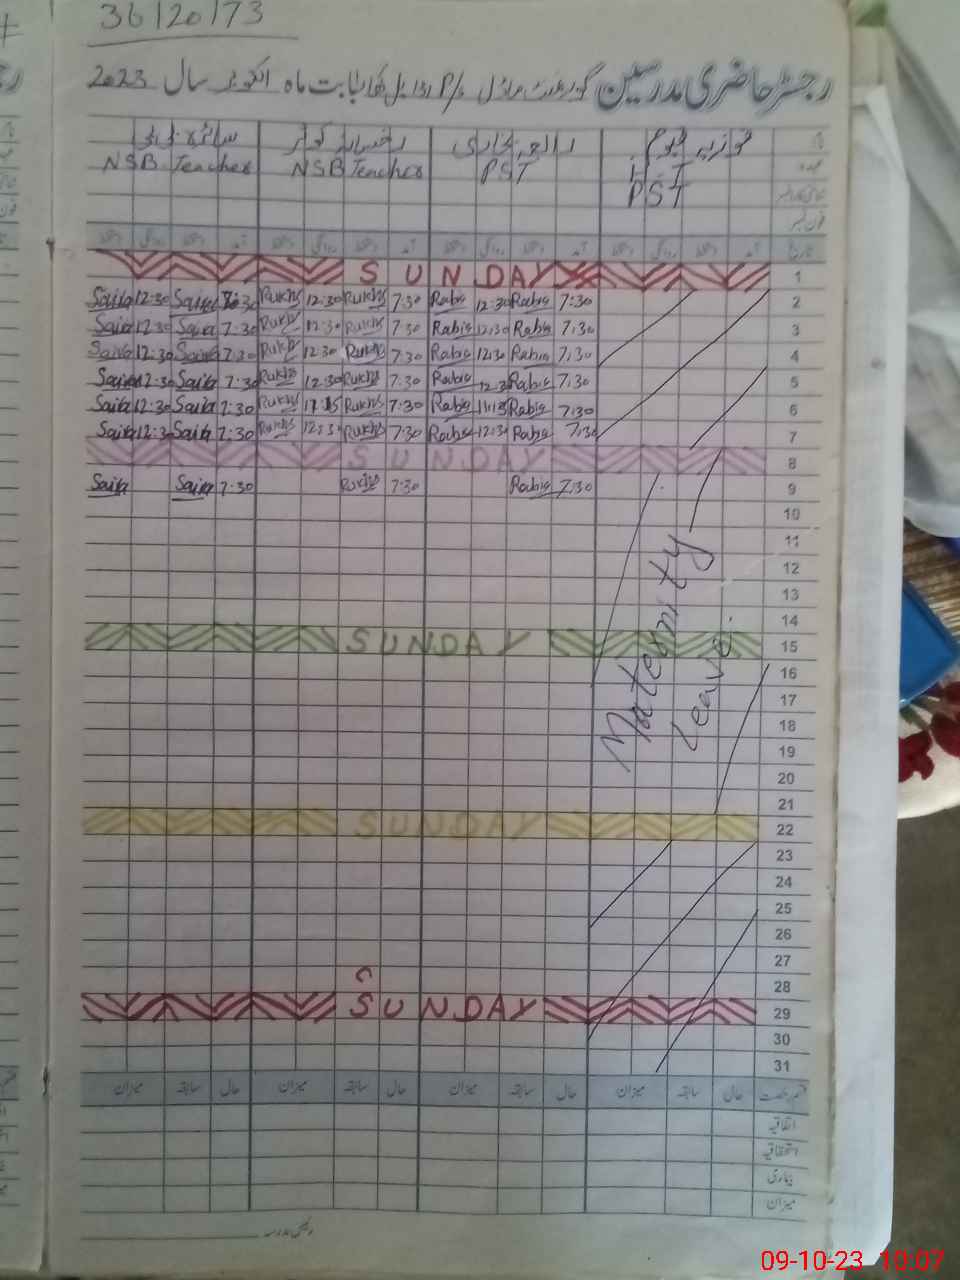 36120173
رجسٹر حاضری مدرسین گورنمنٹ ماڈل P/S بابت ماہ اکتوبر سال 2023
فوزیہ رابعہ بخاری رخسانہ کوثر سائرہ بی بی
NSB Teacher NSB Teacher PST PST
فون نمبر
تاریخ آمد دستخط روانگی دستخط آمد دستخط روانگی دستخط آمد دستخط روانگی دستخط آمد دستخط روانگی دستخط
SUNDAY 1
Saira 12:30 Saira 7:30 Rukhs 12:30 Rukhs 7:30 Rabia 12:30 Rabia 7:30 2
Saira 12:30 Saira 7:30 Rukhs 12:30 Rukhs 7:30 Rabia 12:30 Rabia 7:30 3
Saira 12:30 Saira 7:30 Rukhs 12:30 Rukhs 7:30 Rabia 12:30 Rabia 7:30 4
Saira 12:30 Saira 7:30 Rukhs 12:30 Rukhs 7:30 Rabia 12:30 Rabia 7:30 5
Saira 12:30 Saira 7:30 Rukhs 11:15 Rukhs 7:30 Rabia 11:15 Rabia 7:30 6
Saira 12:30 Saira 7:30 Rukhs 12:30 Rukhs 7:30 Rabia 12:30 Rabia 7:30 7
SUNDAY 8
Saira Saira 7:30 Rukhs 7:30 Rabia 7:30 9
10
11
12
13
14
SUNDAY 15
Maternity Leave.
16
17
18
19
20
21
SUNDAY 22
23
24
25
26
27
28
SUNDAY 29
30
31
قسم رخصت حال سابقہ میزان حال سابقہ میزان حال سابقہ میزان حال سابقہ میزان
اتفاقیہ
استحقاقیہ
بیماری
میزان
دستخط مدرسہ
09-10-23 10:07